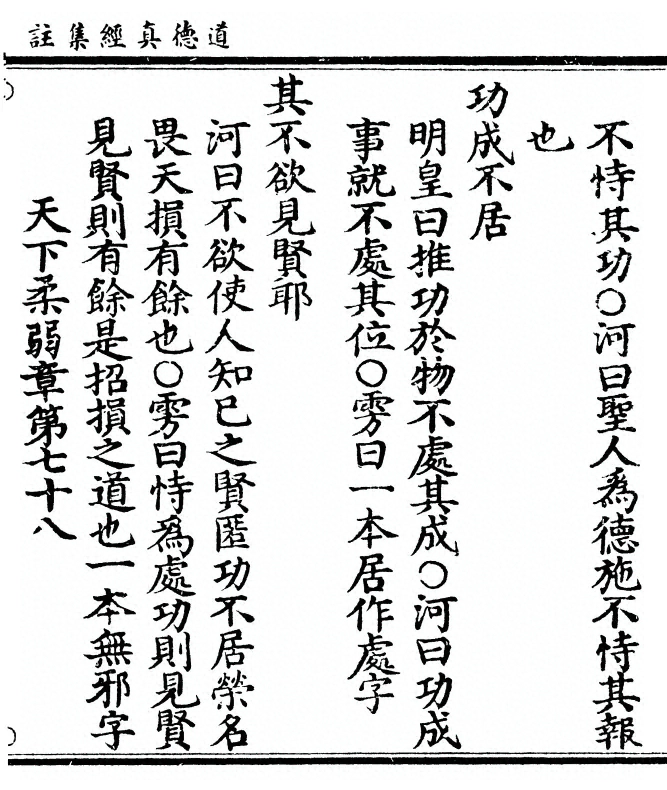 道德真經集註
不恃其功○河曰聖人爲德施不恃其報
也
功成不居
明皇曰推功於物不處其成○河曰功成
事就不處其位○雱曰一本居作處字
其不欲見賢耶
河曰不欲使人知已之賢匿功不居榮名
畏天損有餘也○雱曰恃爲處功則見賢
見賢則有餘是招損之道也一本無邪字
天下柔弱章第七十八